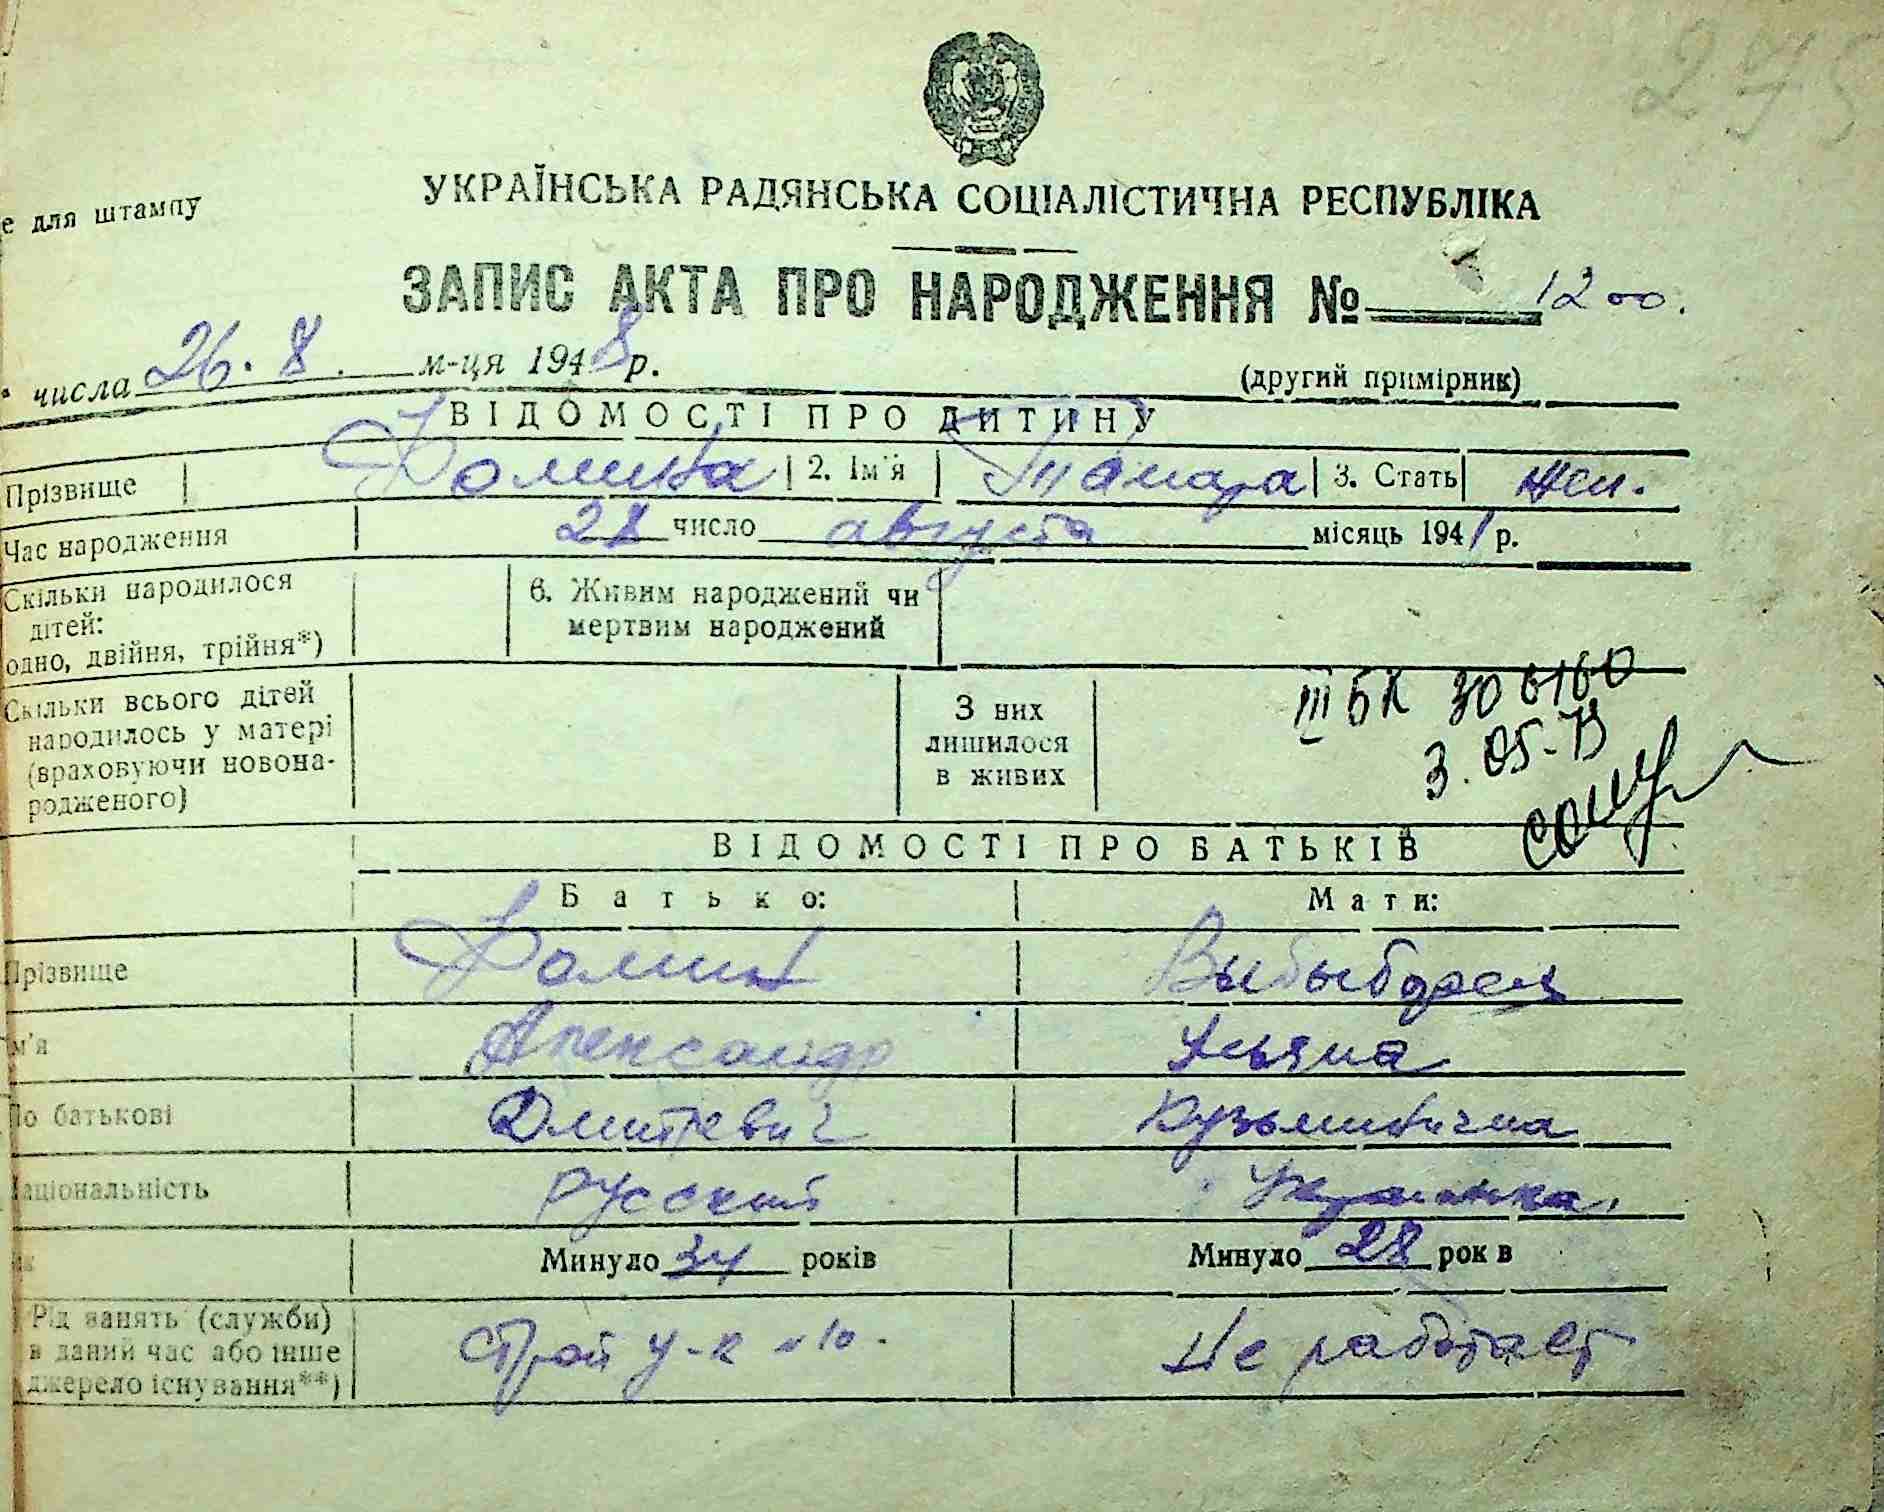 275
е для штампу
УКРАЇНСЬКА РАДЯНСЬКА СОЦІАЛІСТИЧНА РЕСПУБЛІКА
ЗАПИС АКТА ПРО НАРОДЖЕННЯ № 1200.
числа 26.8. м-ця 1948 р.
(другий примірник)
ВІДОМОСТІ ПРО ДИТИНУ
Прізвище Фомина 2. Ім'я Тамара 3. Стать жен.
Час народження 28 число августа місяць 1941 р.
Скільки народилося дітей: одно, двійня, трійня*)
6. Живим народжений чи мертвим народжений
Скільки всього дітей народилось у матері (враховуючи новонародженого)
З них лишилося в живих
III БК 306160
3.05-73
ВІДОМОСТІ ПРО БАТЬКІВ
Батько: Мати:
Прізвище Фомин
м'я Александр Ульяна
По батькові Дмитревич Кузьминична
Національність русский Украинка
Минуло 34 років Минуло 28 рок в
Рід занять (служби) в даний час або інше джерело існування**)
Строй у-к №10. Не работает